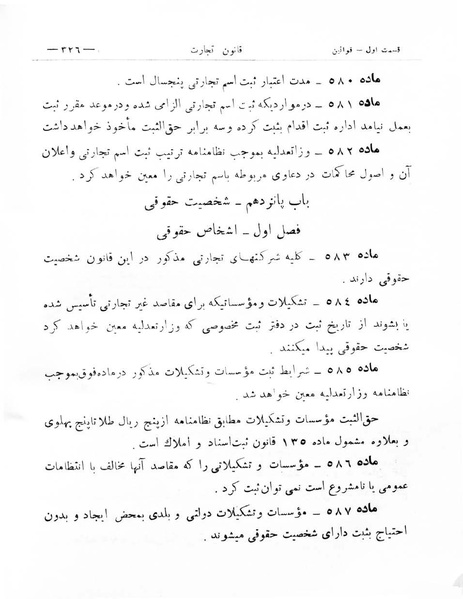 قسمت اول - قوانین
قانون تجارت
- ۳۲۶ -
ماده ۵۸۰ - مدت اعتبار ثبت اسم تجارتی پنجسال است .
ماده ۵۸۱ - در مواردیکه ثبت اسم تجارتی الزامی شده و در موعد مقرر ثبت
بعمل نیامد اداره ثبت اقدام بثبت کرده و سه برابر حق‌الثبت مأخوذ خواهد داشت
ماده ۵۸۲ - وزارتعدلیه بموجب نظامنامه ترتیب ثبت اسم تجارتی و اعلان
آن و اصول محاکمات در دعاوی مربوطه باسم تجارتی را معین خواهد کرد .
باب پانزدهم - شخصیت حقوقی
فصل اول - اشخاص حقوقی
ماده ۵۸۳ - کلیه شرکتهای تجارتی مذکور در این قانون شخصیت
حقوقی دارند .
ماده ۵۸۴ - تشکیلات و مؤسساتیکه برای مقاصد غیر تجارتی تأسیس شده
یا بشوند از تاریخ ثبت در دفتر ثبت مخصوصی که وزارتعدلیه معین خواهد کرد
شخصیت حقوقی پیدا میکنند .
ماده ۵۸۵ - شرایط ثبت مؤسسات و تشکیلات مذکور در ماده فوق بموجب
نظامنامه وزارتعدلیه معین خواهد شد .
حق‌الثبت مؤسسات و تشکیلات مطابق نظامنامه از پنج ریال طلا تا پنج پهلوی
و بعلاوه مشمول ماده ۱۳۵ قانون ثبت اسناد و املاک است .
ماده ۵۸۶ - مؤسسات و تشکیلاتی را که مقاصد آنها مخالف با انتظامات
عمومی یا نامشروع است نمی توان ثبت کرد .
ماده ۵۸۷ - مؤسسات و تشکیلات دولتی و بلدی بمحض ایجاد و بدون
احتیاج بثبت دارای شخصیت حقوقی میشوند .